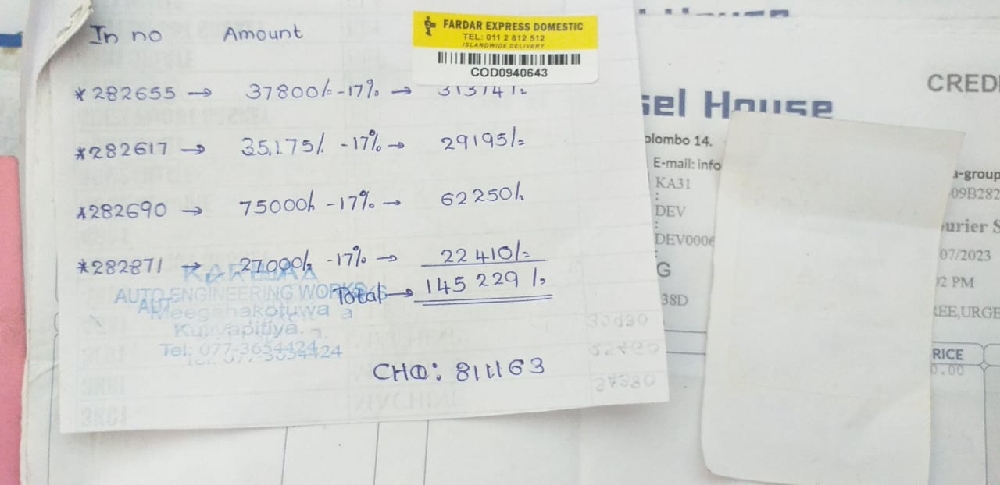 In no Amount
FARDAR EXPRESS DOMESTIC
TEL: 011 2 812 512
ISLANDWIDE DELIVERY
COD0940643
*282655 → 37800/- -17% → 31374/-
*282617 → 35,175/- -17% → 29195/-
*282690 → 75000/- -17% → 62250/-
*282871 → 27000/- -17% → 22410/-
Total → 145229/-
AUTO ENGINEERING WORKS
Meegahakotuwa
Kuliyapitiya.
Tel: 077-3654424
CHQ: 811163
CREDI
sel House
olombo 14.
E-mail: info
KA31
DEV
DEV0006
G
38D
a-group
09B282
urier S
07/2023
2 PM
EE,URGE
RICE
0.00